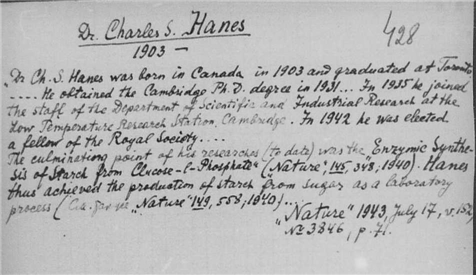 Dr. Charles S. Hanes
428
1903 —
"Dr Ch. S. Hanes was born in Canada in 1903 and graduated at Toronto
..... He obtained the Cambridge Ph.D. degree in 1931... In 1935 he joined
the staff of the Department of Scientific and Industrial Research at the
Low Temperature Research Station, Cambridge. In 1942 he was elected
a fellow of the Royal Society....
The culminating point of his researches (to date) was the Enzymic Synthe-
sis of Starch from Glucose-1-Phosphate" ("Nature", 145, 348, 1940). Hanes
thus achieved the production of starch from sugar as a laboratory
process ( "Nature" 149, 558, 1940)...
"Nature" 1943, July 17, v. 152
No 3846, p. 71.